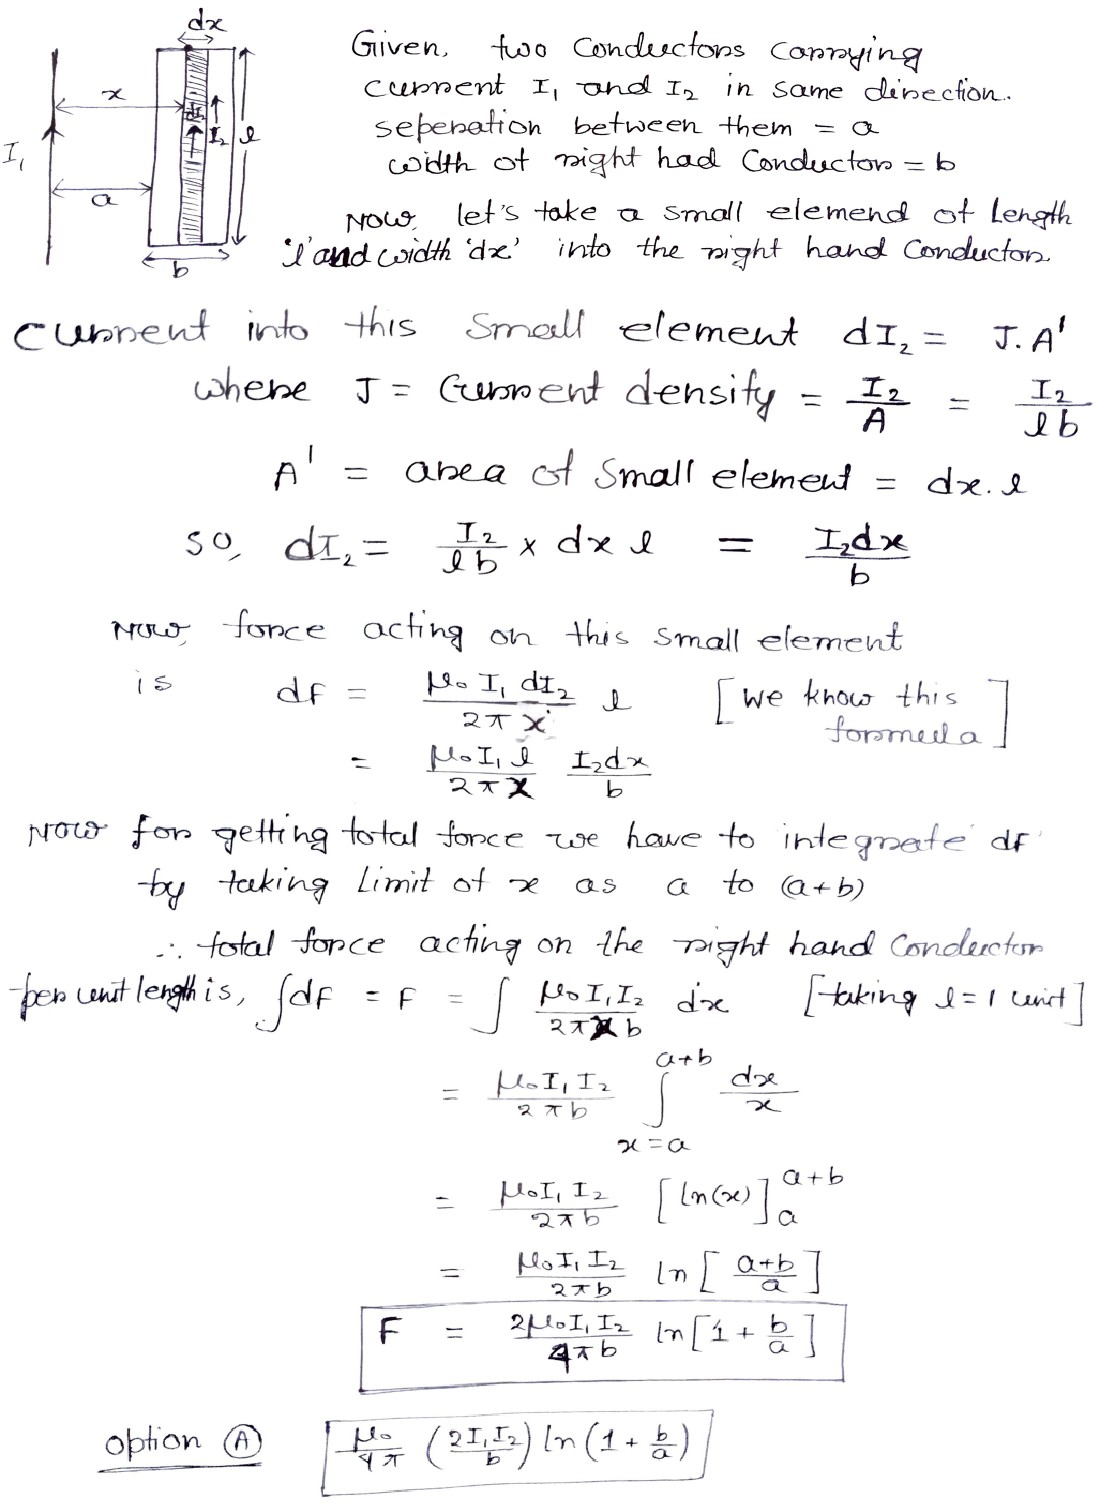 dx
Given, two Conductors carrying
x
current I₁ and I₂ in same direction.
dI₂
I₂
l
seperation between them = a
I₁
width of right had Conductor = b
a
b
Now, let's take a small elemend of Length
'l' and width 'dx' into the right hand Conductor.
current into this small element dI₂ = J.A'
where J = Current density = I₂/A = I₂/lb
A' = area of small element = dx.l
so, dI₂ = I₂/lb × dx l = I₂dx/b
Now, force acting on this small element
is dF = μ₀ I₁ dI₂/2π x l [we know this formula]
= μ₀ I₁ l/2π x I₂dx/b
Now for getting total force we have to integrate dF
by taking Limit of x as a to (a+b)
∴ total force acting on the right hand Conductor
per unit length is, ∫dF = F = ∫ μ₀ I₁ I₂/2π x b dx [taking l = 1 unit]
= μ₀ I₁ I₂/2πb ∫_{x=a}^{a+b} dx/x
= μ₀ I₁ I₂/2πb [ln(x)]_a^{a+b}
= μ₀ I₁ I₂/2πb ln[a+b/a]
F = 2μ₀ I₁ I₂/4πb ln[1 + b/a]
option Ⓐ μ₀/4π (2I₁I₂/b) ln(1 + b/a)